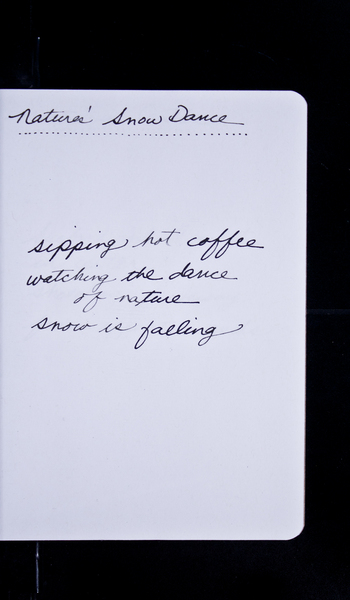 Natures' Snow Dance
sipping hot coffee
watching the dance
of nature
snow is falling